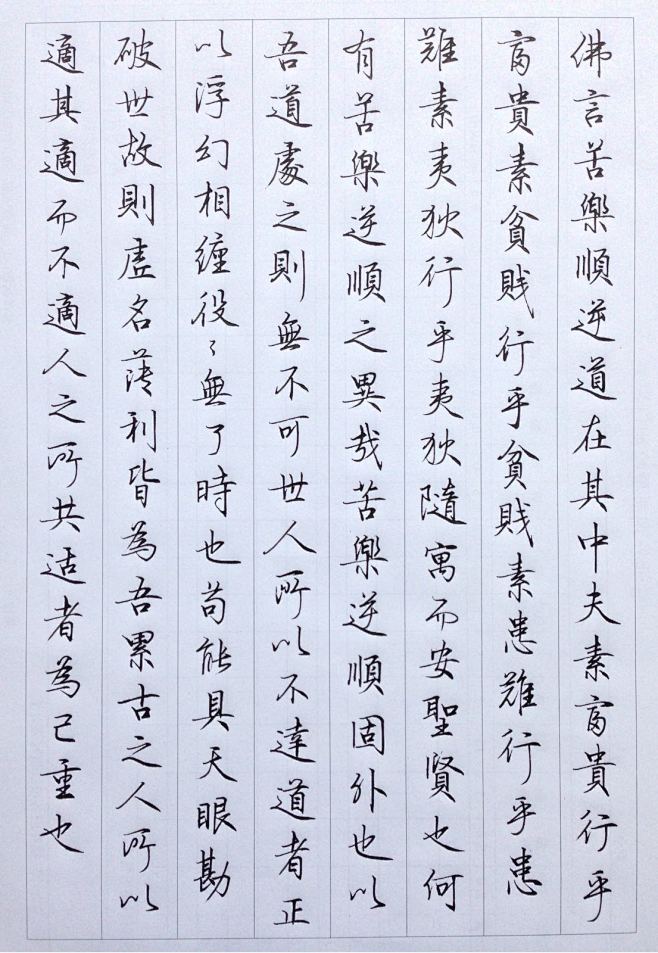 佛言苦樂順逆道在其中夫素富貴行乎
富貴素貧賤行乎貧賤素患難行乎患
難素夷狄行乎夷狄隨寓而安聖賢也何
有苦樂逆順之異哉苦樂逆順固外也以
吾道處之則無不可世人所以不達道者正
以浮幻相纏役〻無了時也苟能具天眼勘
破世故則虛名薄利皆為吾累古之人所以
適其適而不適人之所共适者為己重也